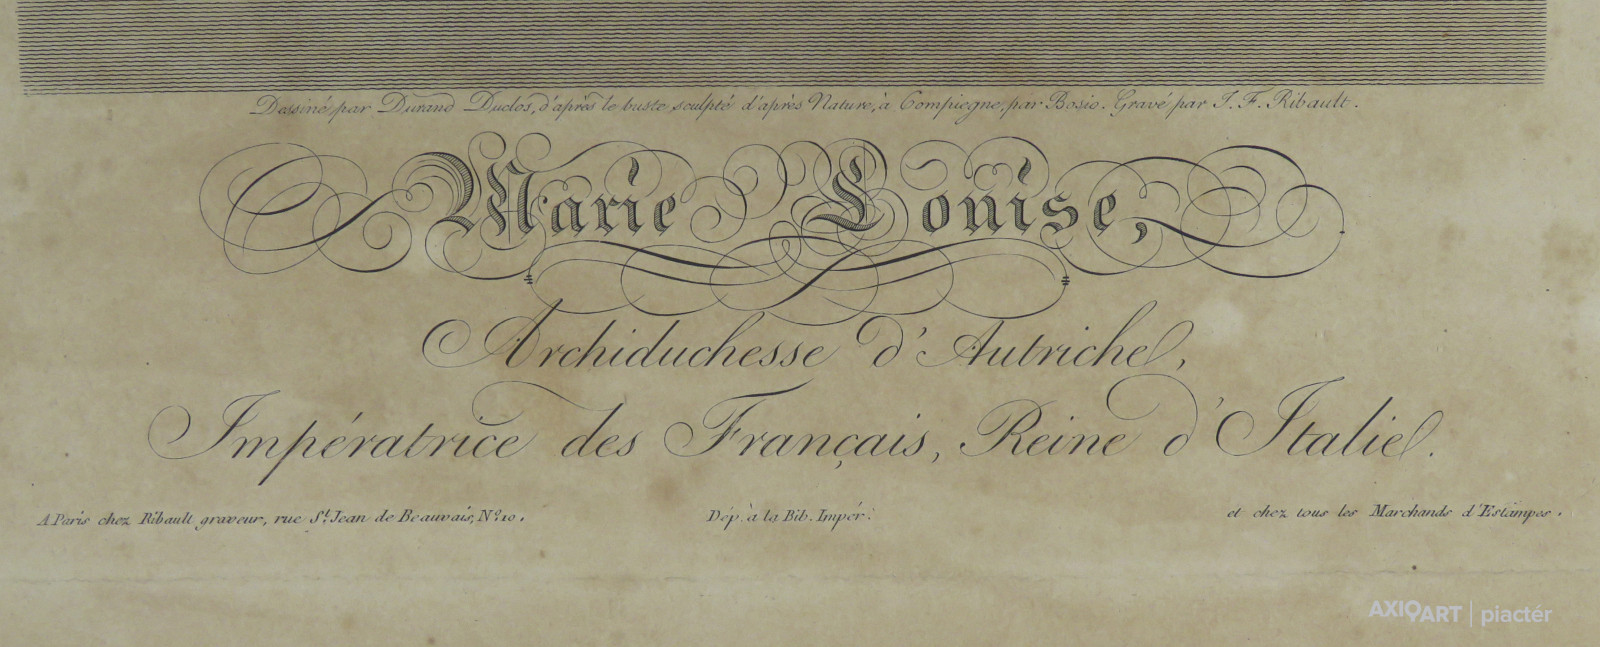 Dessiné par Durand Duclos, d'après le buste sculpté d'après Nature, à Compiegne, par Bosio. Gravé par J. F. Ribault.
Marie Louise,
Archiduchesse d'Autriche,
Impératrice des Français, Reine d'Italie.
A Paris chez Ribault graveur, rue St. Jean de Beauvais, No. 10.
Dép. à la Bib. Impér:
et chez tous les Marchands d'Estampes.
AXIOART | piactér